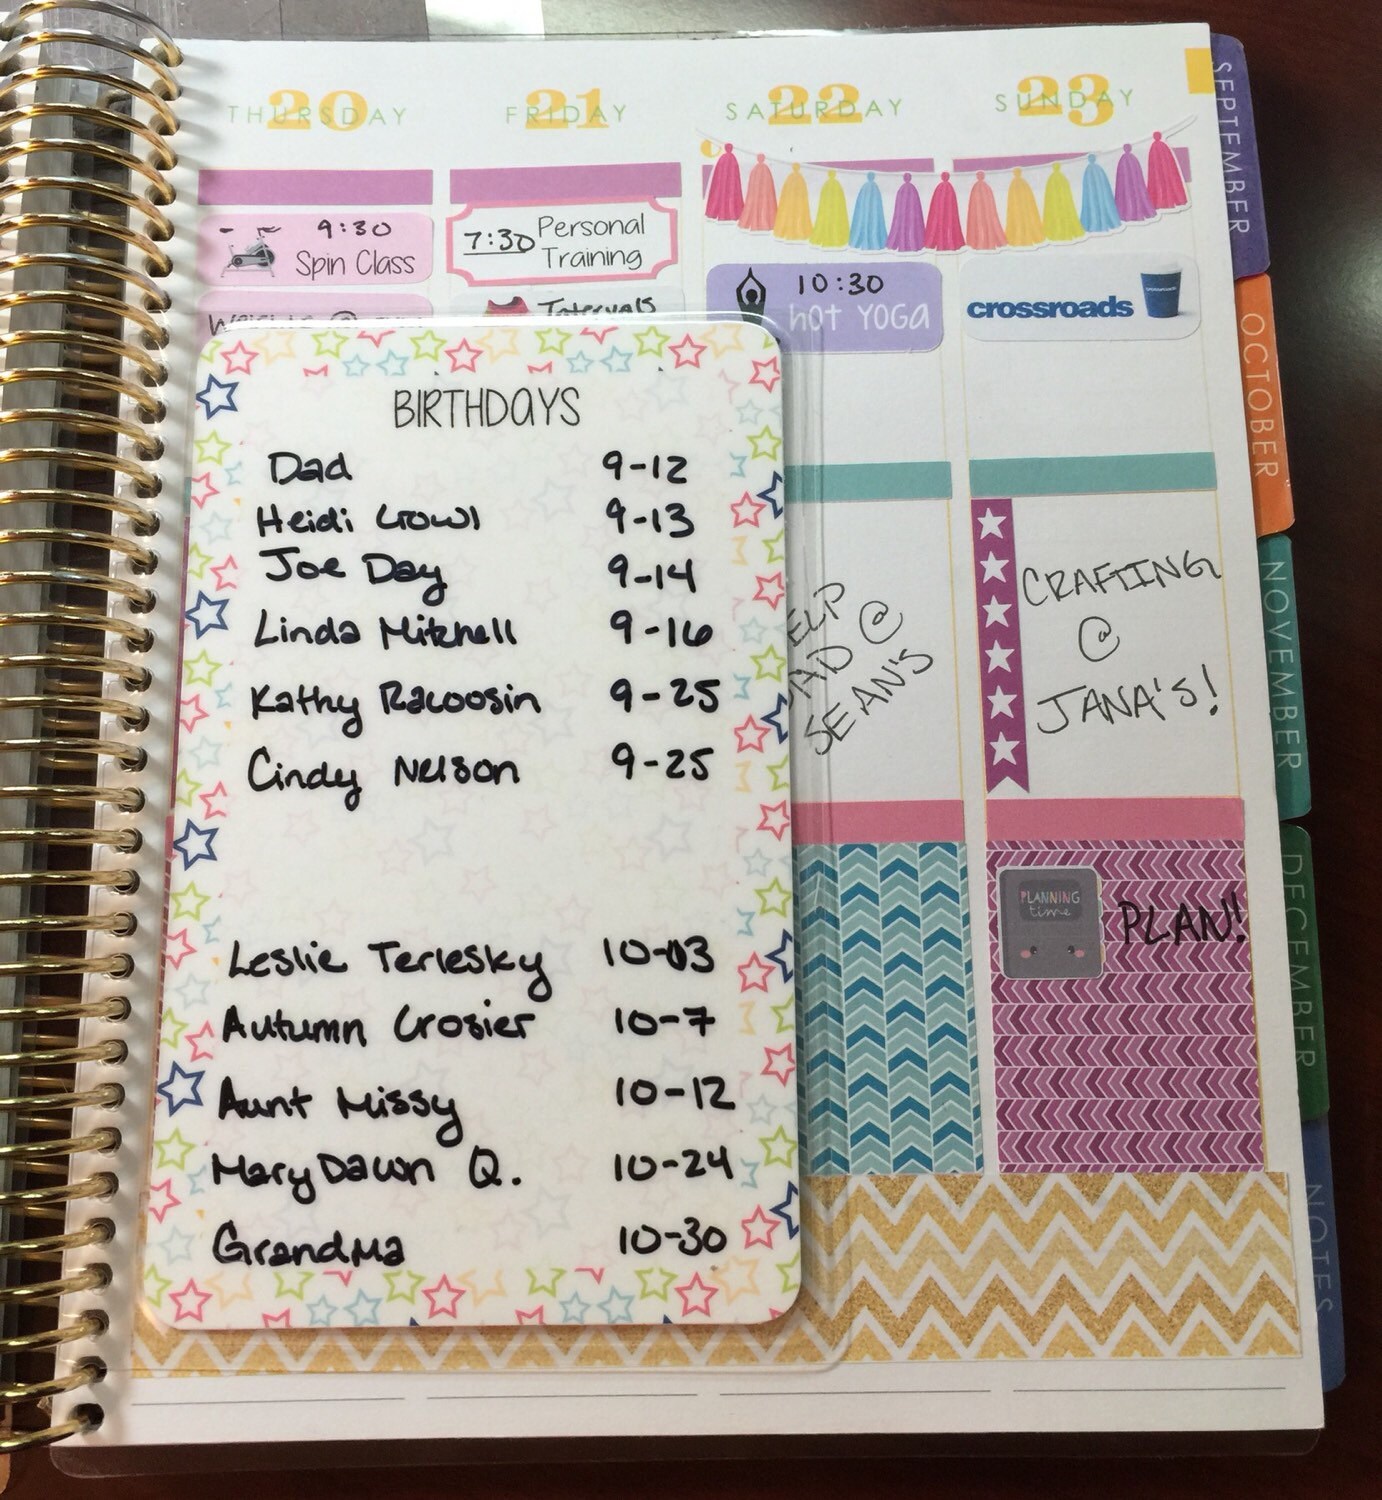 THURSDAY 20
FRIDAY 21
SATURDAY 22
SUNDAY 23
9:30
Spin Class
7:30 Personal
Training
10:30
hot YOGA
crossroads
Intervals
BIRTHDAYS
Dad 9-12
Heidi Crowl 9-13
Joe Day 9-14
Linda Mitchell 9-16
Kathy Racoosin 9-25
Cindy Nelson 9-25
Leslie Terlesky 10-03
Autumn Crosier 10-7
Aunt Missy 10-12
Mary Dawn Q. 10-24
Grandma 10-30
ELP
AD @
SEAN'S
CRAFTING
@
JANA'S!
PLANNING
time
PLAN!
SEPTEMBER
OCTOBER
NOVEMBER
DECEMBER
NOTES